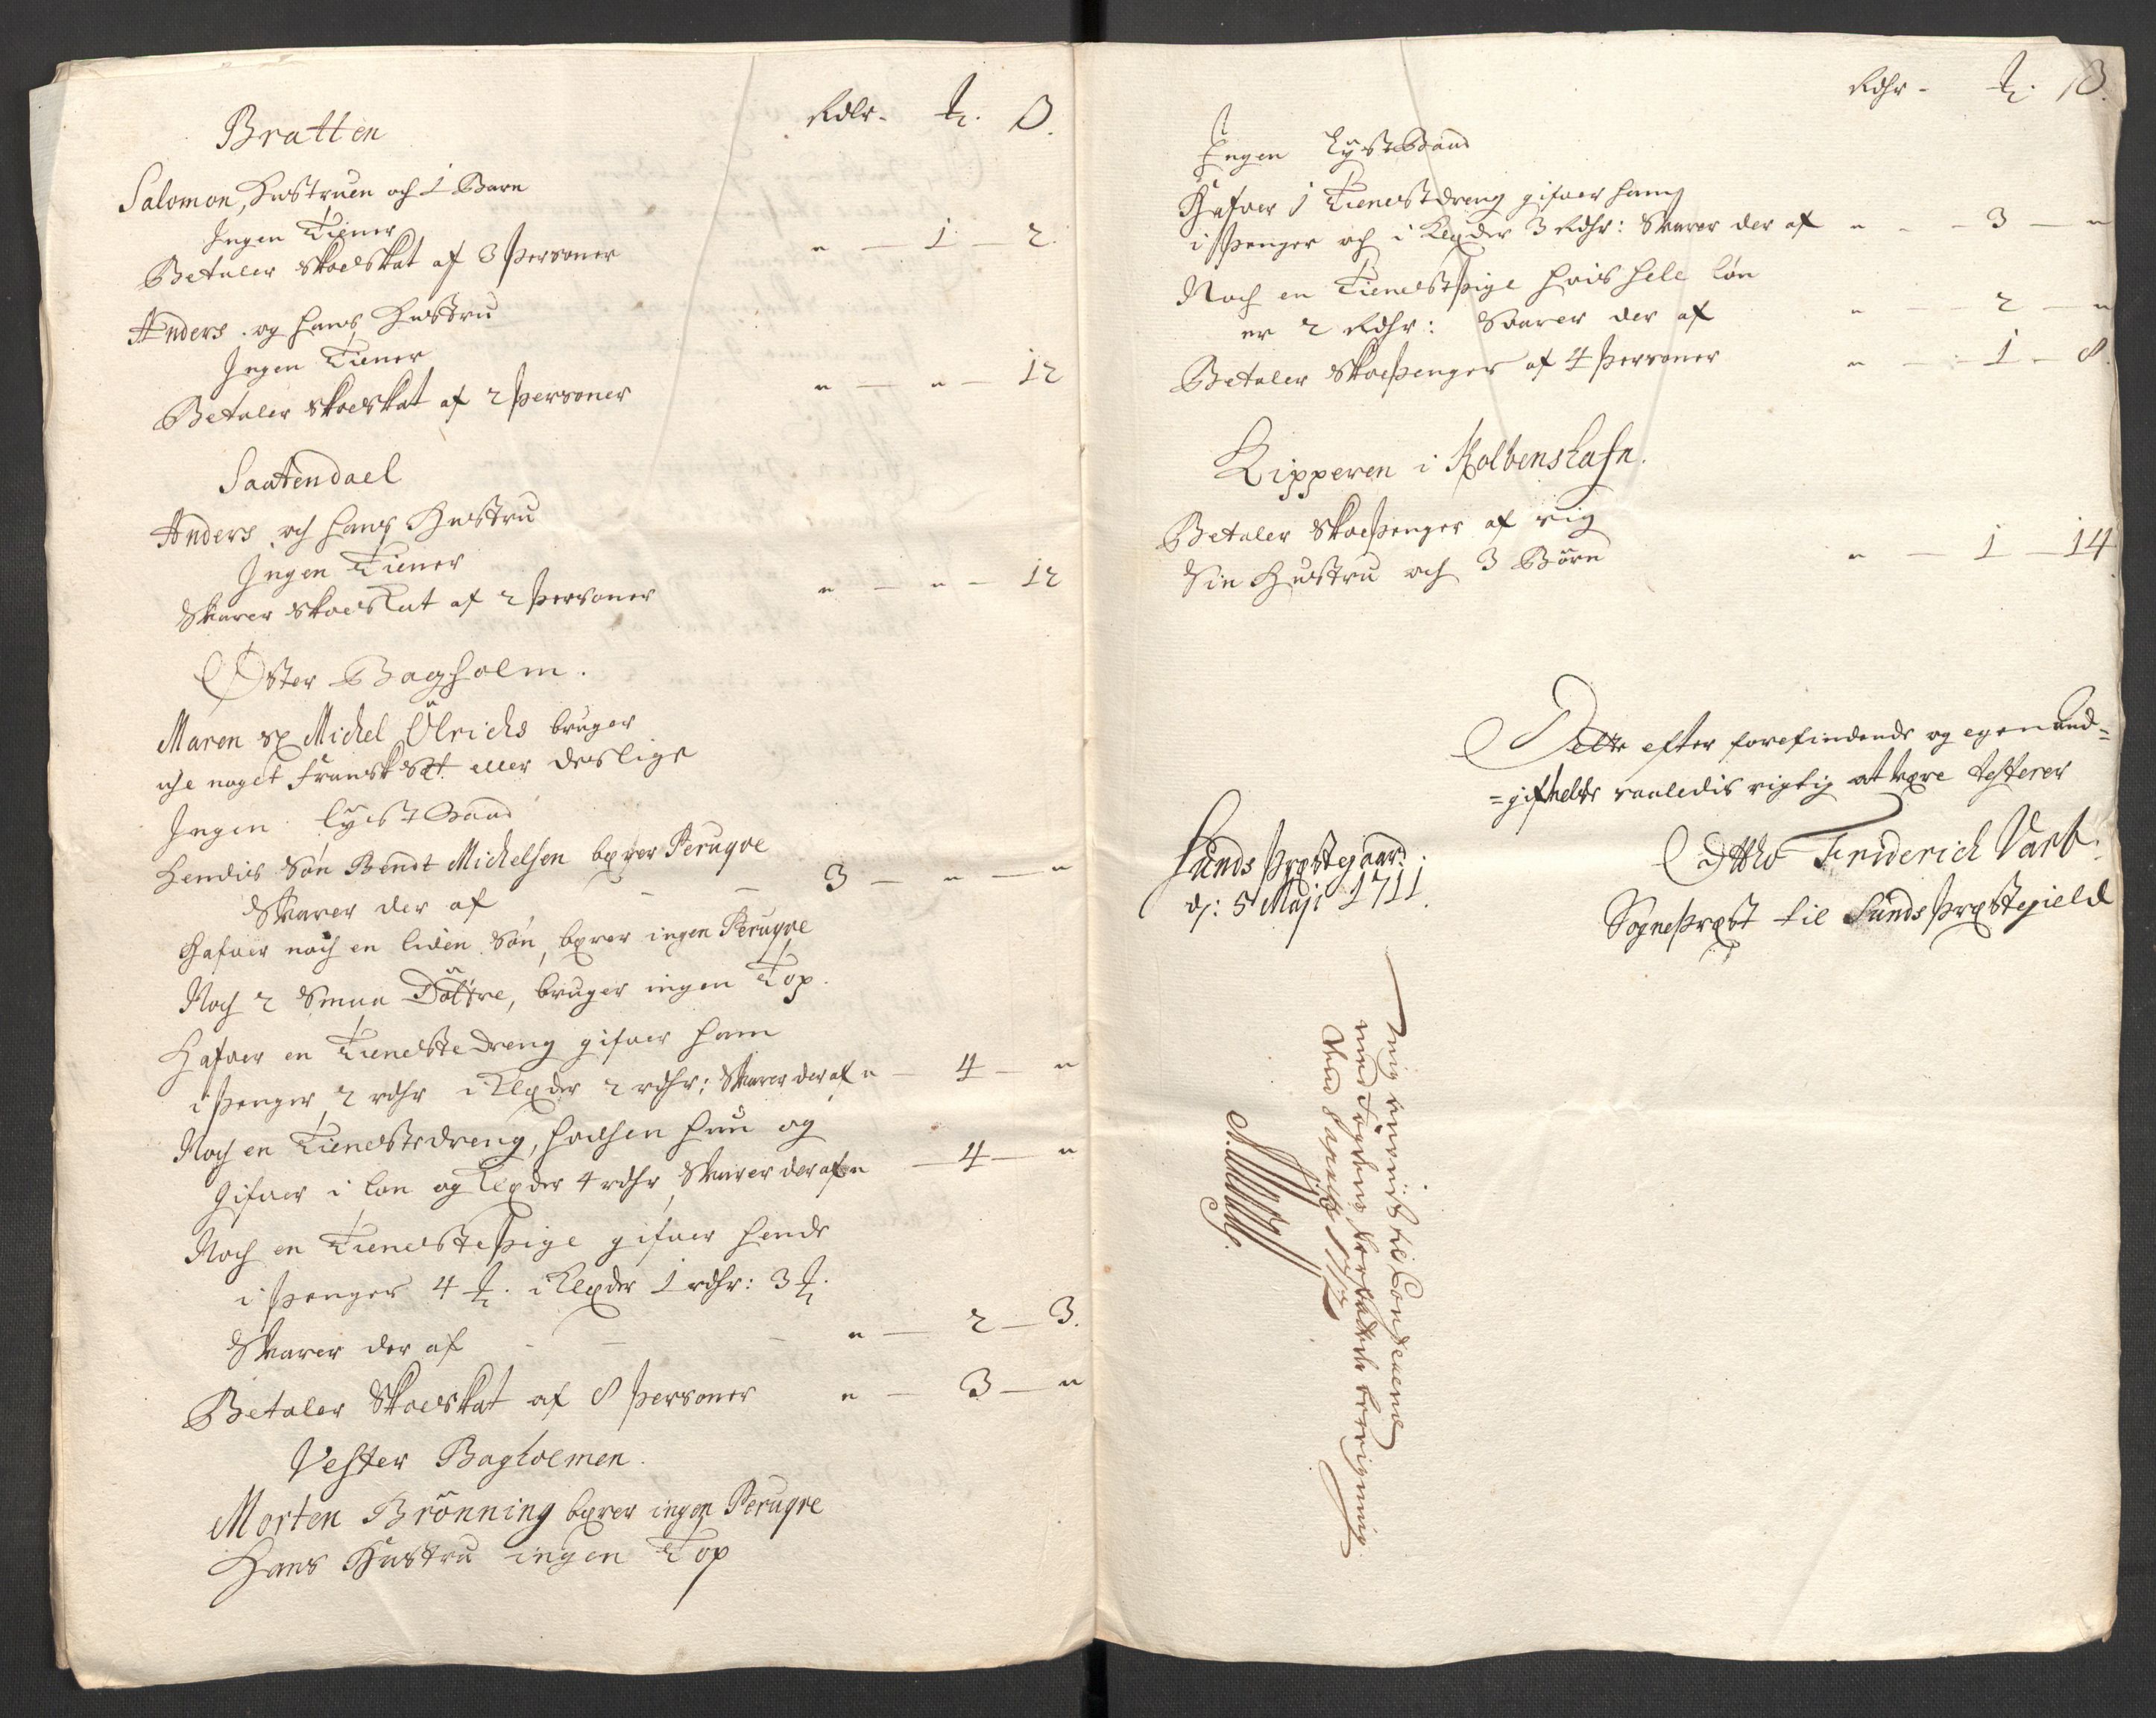 Rdlr - ℔. β.
Bratten
Salomon, Hustruen och 1 Barn
Ingen Tiener
Betaler Skoeskat af 3 Personer " — 1 — 2.
Anders og hans Hustru
Ingen Tiener
Betaler Skoeskat af 2 Personer " — " — 12
Saatendael
Anders och hans Hustru
Ingen Tiener
Svarer Skoeskat af 2 Personer " — " — 12
Øster Bagholm.
Maren Michel Ulrichs bruger
iche noget Fransk Sæt eller deslige
Ingen Lyst Baad
Hendis Søn Bendt Michelsen bærer Peruqve
Svarer der af 3 — " — "
Hafver noch en liden Søn, bærer ingen Peruqve
Noch 2 Smaa Døttre, bruger ingen Top.
Hafver en Tieneste dreng gifver ham
i Penger 2 rdhr i Klæder 2 rdhr: Svarer der af " — 4 — "
Noch en Tienestedreng, hvilchen hun og
Gifver i løn og Klæder 4 rdhr, Svarer der af " — 4 — "
Noch en Tienestepige gifver hende
i Penger 4 ℔. i Klæder 1 rdhr: 3 ℔.
Svarer der af " — 2 — 3.
Betaler Skoeskat af 8 Personer " — 3 — "
Vester Bagholmen.
Morten Brønning bærer ingen Peruqve
Hans Hustru ingen Top
Rdhr - ℔. β.
Ingen Lyst Baad
Hafver 1 Tienestdreng gifver ham
i Penger och i Klæder 3 Rdhr: Svarer der af " - 3 — "
Noch en Tienestpige hvis hele løn
er 2 Rdhr: Svarer der af " — 2 — "
Betaler Skoepenger af 4 Personer " — 1 — 8.
Kipperen i Kolbenshafn.
Betaler Skoepenger af sig
Sin Hustru och 3 Børn " — 1 — 14
Dette efter forefindende og egenænd=
=gifvelse saaledis rigtig at være testerer
Sunds Præstegaard.
d: 5 Maji 1711.
Ottho Friderich Vart.
Sognepræst til Sunds Præstegield
Mig levert til Contoirene
med Fogdens forfattede beregning
den 8 1712